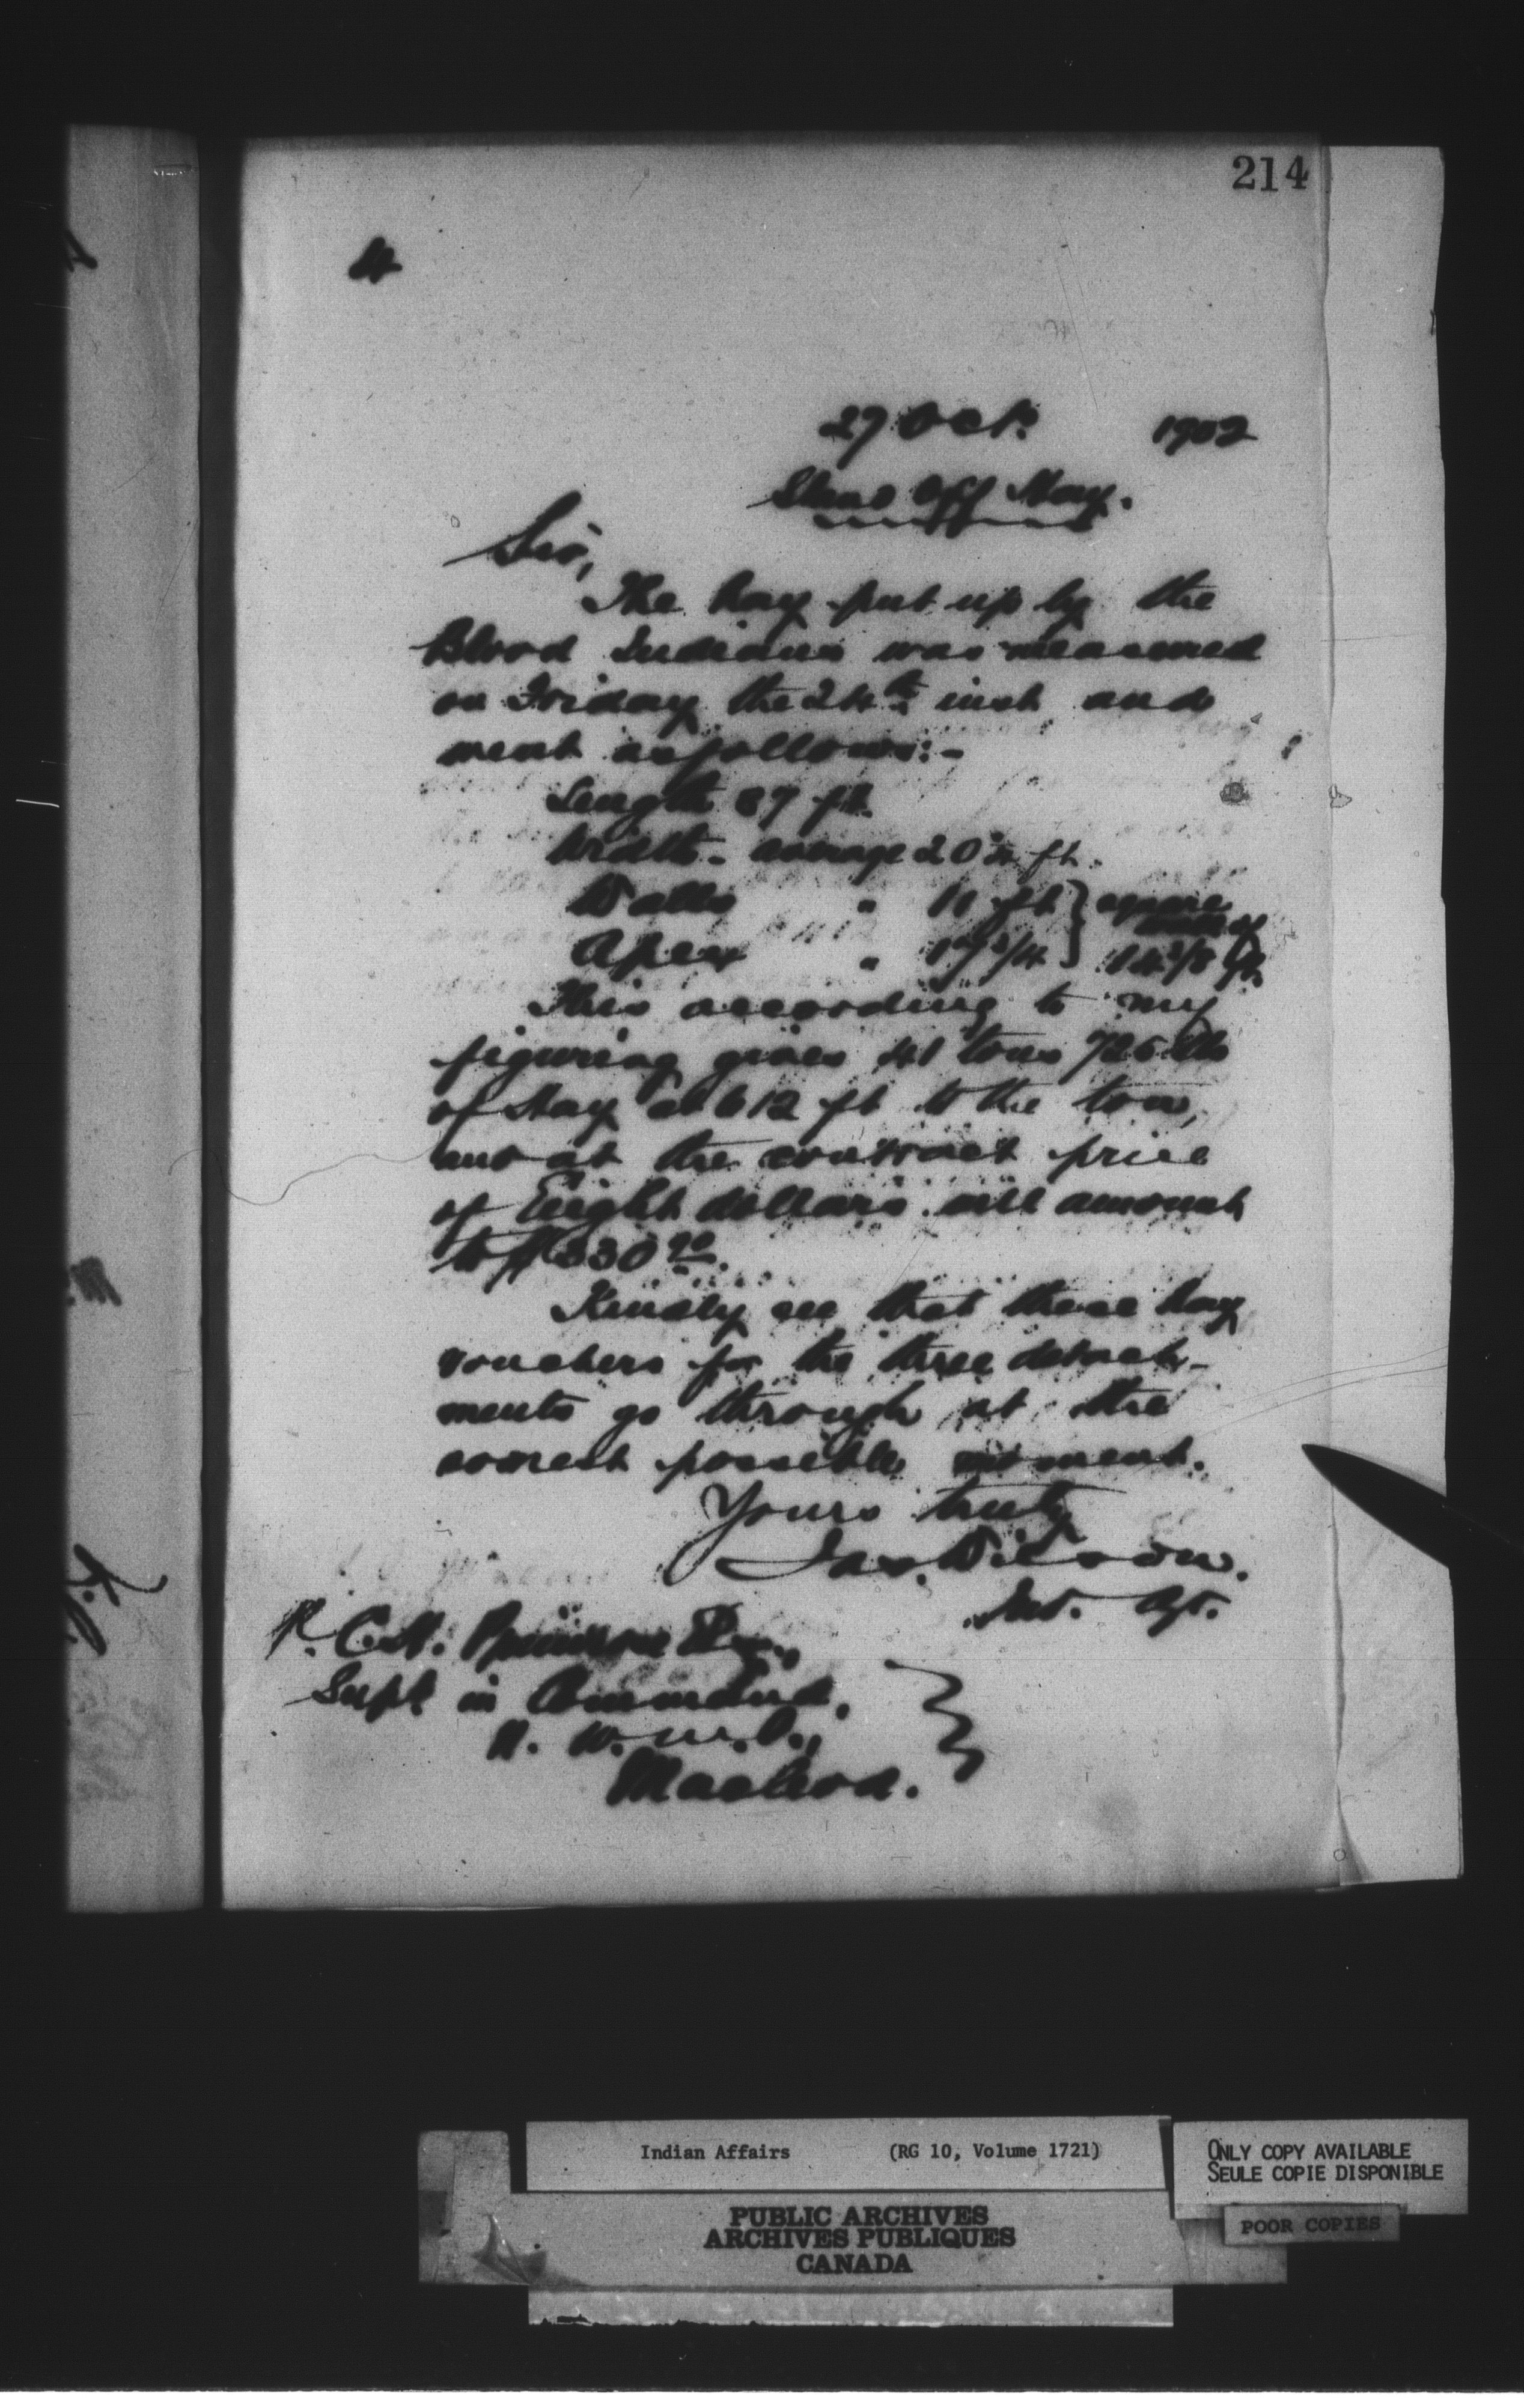 214
27 Oct. 1902
Stand Off Hay.
Sir,
The hay put up by the
Blood Indians was measured
on Friday the 24th inst and
went as follows:-
Length 87 ft.
Width - average 20 ft.
Walls " 11 ft } square
Apex " 17 3/4 } 14 3/8 ft.
This according to my
figuring gives 41 tons 726 lbs
of Hay at 612 ft to the ton,
and at the contract price
of Eight dollars will amount
to $330.90.
Kindly see that these hay
vouchers for the three detach-
ments go through at the
soonest possible moment.
Yours truly
Jas. Wilson.
Ind. Agt.
Supt in Command,
N. W. M. P.,
Macleod.
Indian Affairs (RG 10, Volume 1721)
ONLY COPY AVAILABLE
SEULE COPIE DISPONIBLE
POOR COPIES
PUBLIC ARCHIVES
ARCHIVES PUBLIQUES
CANADA